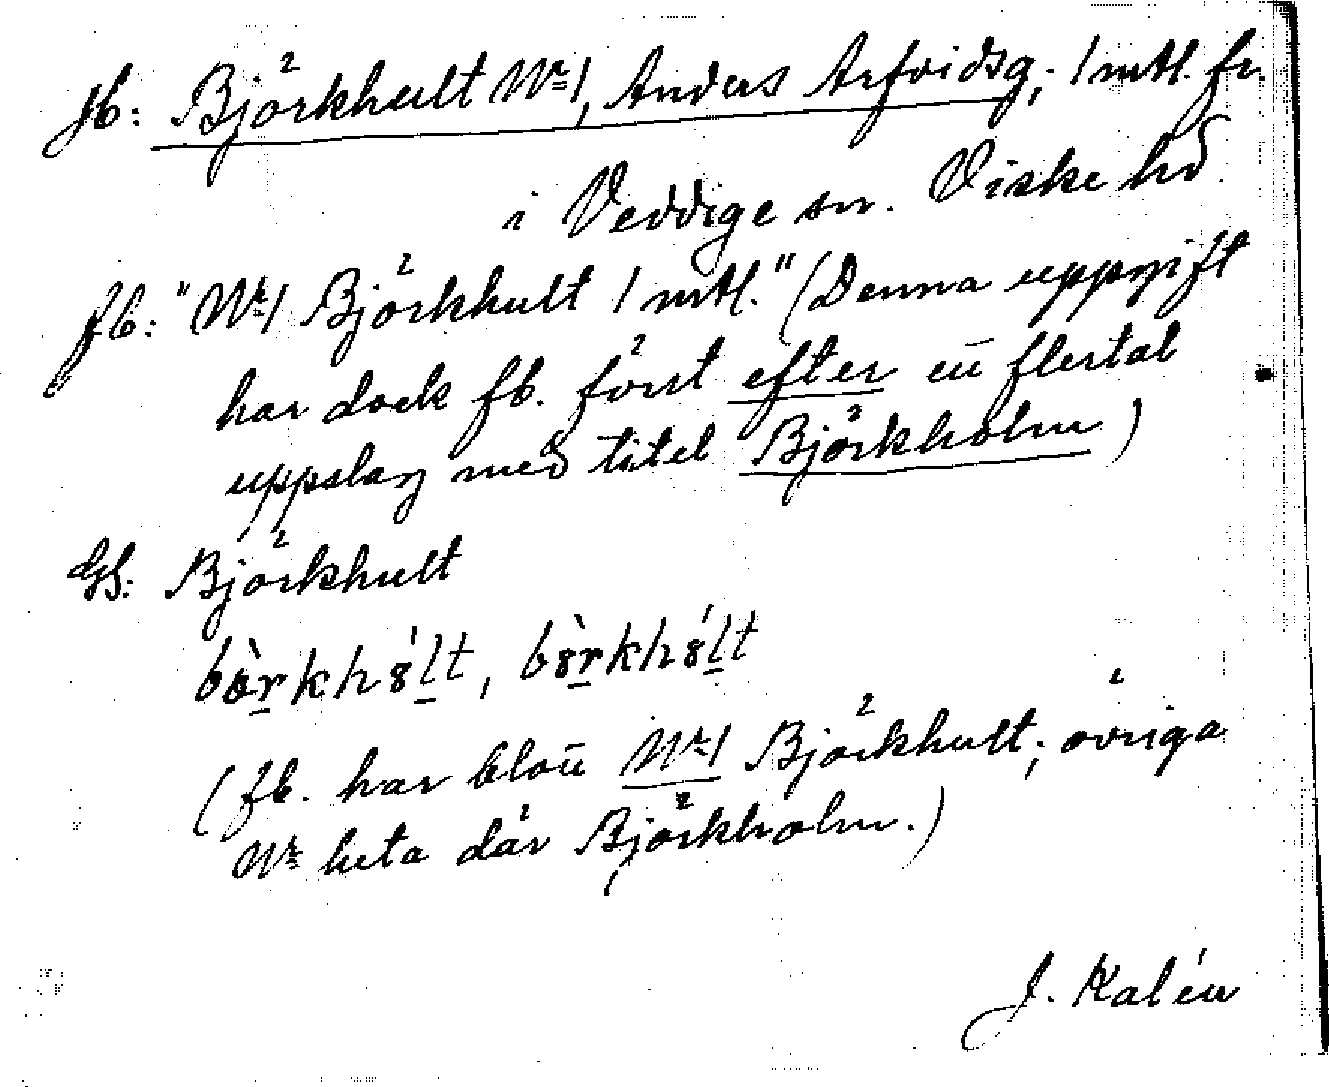 Jb: Björkhult Nr 1, Anders Arfvidsg; 1 mtl. fr.
i Veddige sn. Viske hd
fb: "Nr 1 Björkhult 1 mtl." (Denna uppgift
har dock fb. först efter ett flertal
uppslag med titel Björkholm)
GS: Björkhult
(fb. har blott Nr 1 Björkhult; övriga
Nr heta där Björkholm.)
J. Kalén